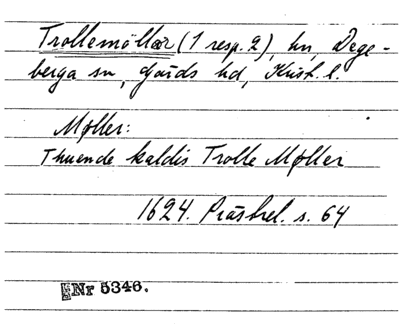 Trollemöllor (1 resp. 2), hn, Dege-
berga sn, Gärds hd, Krist. l.
Møller:
Thuende kaldis Trolle Møller
1624. Prästrel. s. 64
Nr 5346.